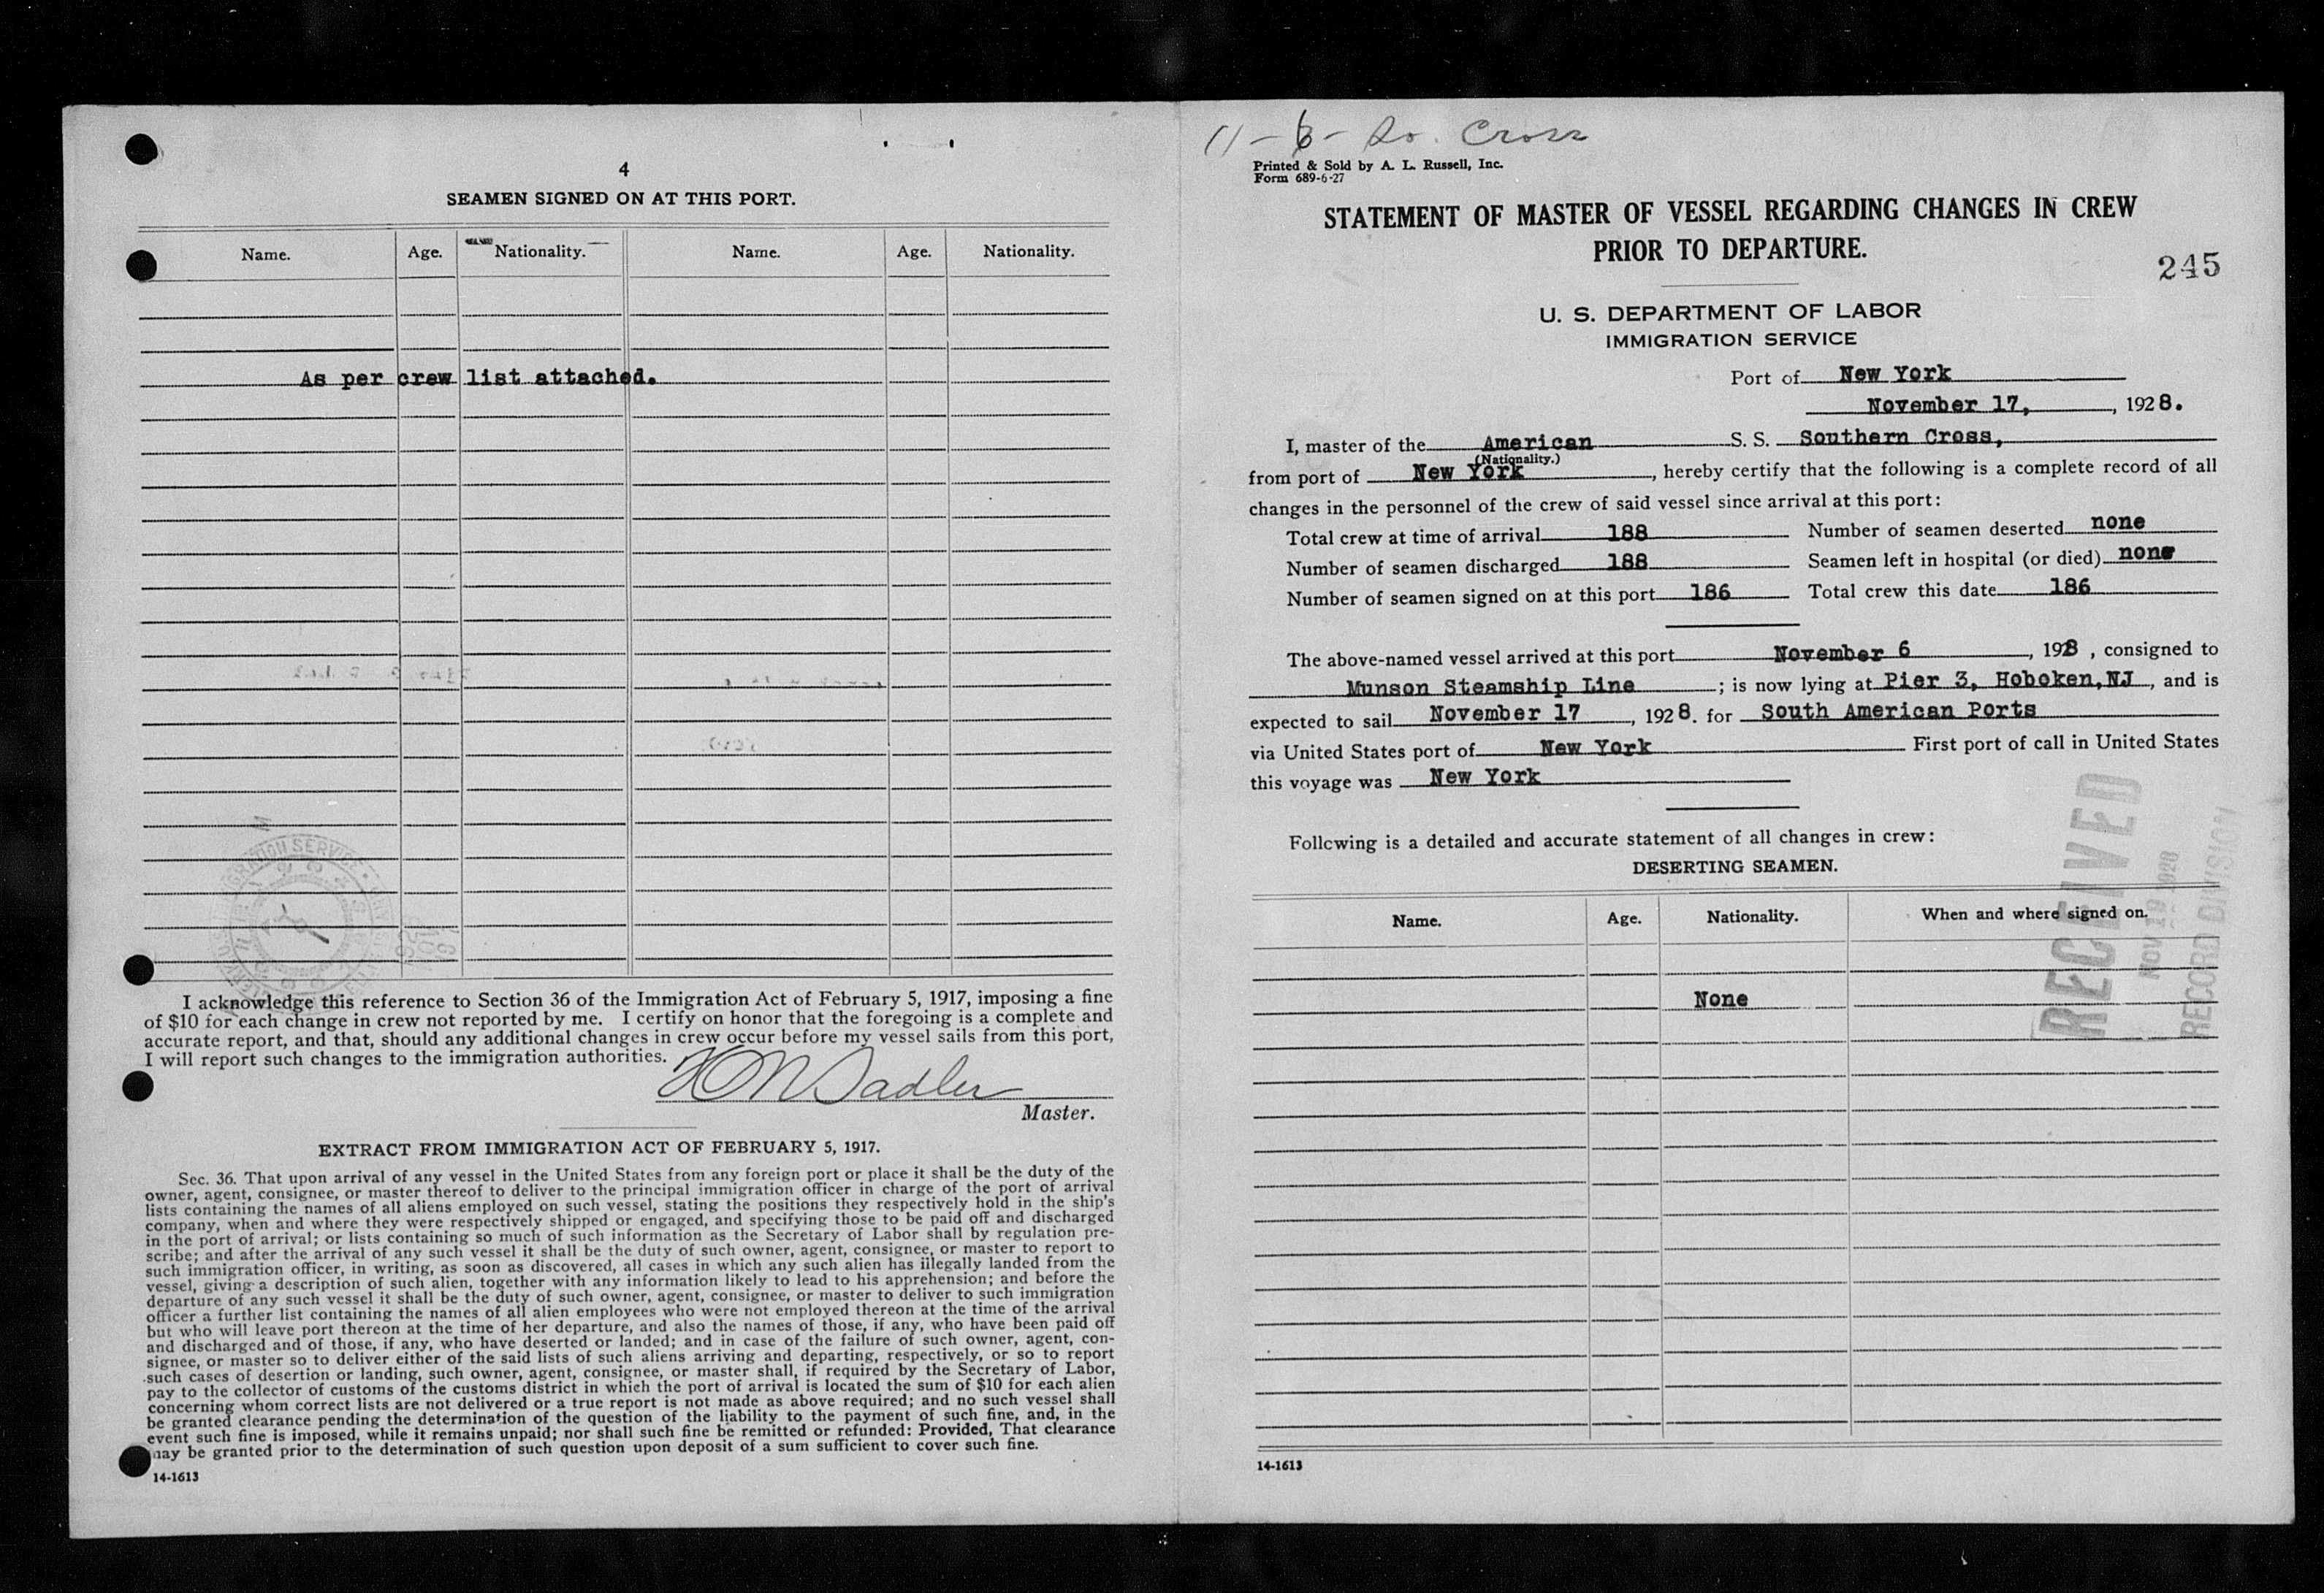 4
SEAMEN SIGNED ON AT THIS PORT.
Name. Age. Nationality. Name. Age. Nationality.
As per crew list attached.
I acknowledge this reference to Section 36 of the Immigration Act of February 5, 1917, imposing a fine
of $10 for each change in crew not reported by me. I certify on honor that the foregoing is a complete and
accurate report, and that, should any additional changes in crew occur before my vessel sails from this port,
I will report such changes to the immigration authorities.
Sadler
Master.
EXTRACT FROM IMMIGRATION ACT OF FEBRUARY 5, 1917.
Sec. 36. That upon arrival of any vessel in the United States from any foreign port or place it shall be the duty of the
owner, agent, consignee, or master thereof to deliver to the principal immigration officer in charge of the port of arrival
lists containing the names of all aliens employed on such vessel, stating the positions they respectively hold in the ship's
company, when and where they were respectively shipped or engaged, and specifying those to be paid off and discharged
in the port of arrival; or lists containing so much of such information as the Secretary of Labor shall by regulation pre-
scribe; and after the arrival of any such vessel it shall be the duty of such owner, agent, consignee, or master to report to
such immigration officer, in writing, as soon as discovered, all cases in which any such alien has illegally landed from the
vessel, giving a description of such alien, together with any information likely to lead to his apprehension; and before the
departure of any such vessel it shall be the duty of such owner, agent, consignee, or master to deliver to such immigration
officer a further list containing the names of all alien employees who were not employed thereon at the time of the arrival
but who will leave port thereon at the time of her departure, and also the names of those, if any, who have been paid off
and discharged and of those, if any, who have deserted or landed; and in case of the failure of such owner, agent, con-
signee, or master so to deliver either of the said lists of such aliens arriving and departing, respectively, or so to report
such cases of desertion or landing, such owner, agent, consignee, or master shall, if required by the Secretary of Labor,
pay to the collector of customs of the customs district in which the port of arrival is located the sum of $10 for each alien
concerning whom correct lists are not delivered or a true report is not made as above required; and no such vessel shall
be granted clearance pending the determination of the question of the liability to the payment of such fine, and, in the
event such fine is imposed, while it remains unpaid; nor shall such fine be remitted or refunded: Provided, That clearance
may be granted prior to the determination of such question upon deposit of a sum sufficient to cover such fine.
14-1613
11-6- So. Cross
Printed & Sold by A. L. Russell, Inc.
Form 689-6-27
STATEMENT OF MASTER OF VESSEL REGARDING CHANGES IN CREW
PRIOR TO DEPARTURE.
245
U. S. DEPARTMENT OF LABOR
IMMIGRATION SERVICE
Port of New York
November 17, , 1928.
I, master of the American S. S. Southern Cross,
(Nationality.)
from port of New York , hereby certify that the following is a complete record of all
changes in the personnel of the crew of said vessel since arrival at this port:
Total crew at time of arrival 188 Number of seamen deserted none
Number of seamen discharged 188 Seamen left in hospital (or died) none
Number of seamen signed on at this port 186 Total crew this date 186
The above-named vessel arrived at this port November 6 , 1928 , consigned to
Munson Steamship Line ; is now lying at Pier 3, Hoboken,NJ , and is
expected to sail November 17 , 1928. for South American Ports
via United States port of New York First port of call in United States
this voyage was New York
Following is a detailed and accurate statement of all changes in crew:
DESERTING SEAMEN.
Name. Age. Nationality. When and where signed on.
None
RECEIVED
NOV 19 1928
RECORD DIVISION
14-1613